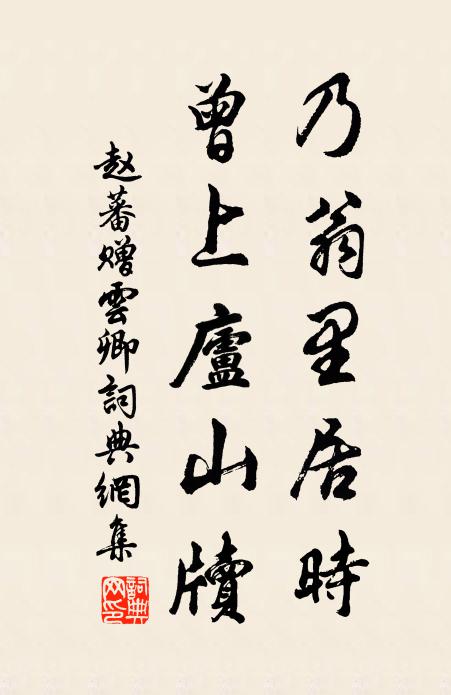 乃翁里居時
曾上廬山牘
赵蕃贈雲卿詞典網集
詞典网印